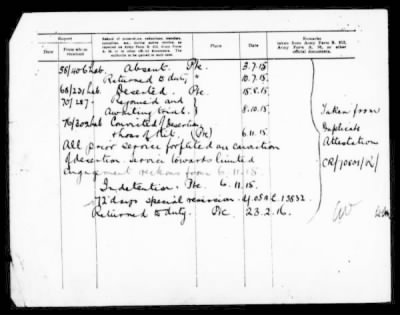 Report
Record of promotions, reductions, transfers, casualties, etc., during active service, as reported on Army Form B. 213, Army Form A. 36, or in other official documents. The authority to be quoted in each case.
Place
Date
Remarks
taken from Army Form B. 213, Army Form A. 36, or other official documents.
Date
From whom received
58/406 Lab. Absent. Pte. 3.7.15.
Returned to duty " 10.7.15.
68/221 Lab. Deserted. Pte. 15.8.15.
70/287 - Rejoined and
Awaiting trial. } 8.10.15.
Convicted of desertion
& loss of Kit. (Pte) 6.11.15.
Taken from
Duplicate
Attestation
All prior service forfeited on conviction
of desertion. Service towards limited
engagement reckons from 6.11.15.
In detention. Pte. 6.11.15.
72 days special remission.
Returned to duty. Pte 23.2.16.